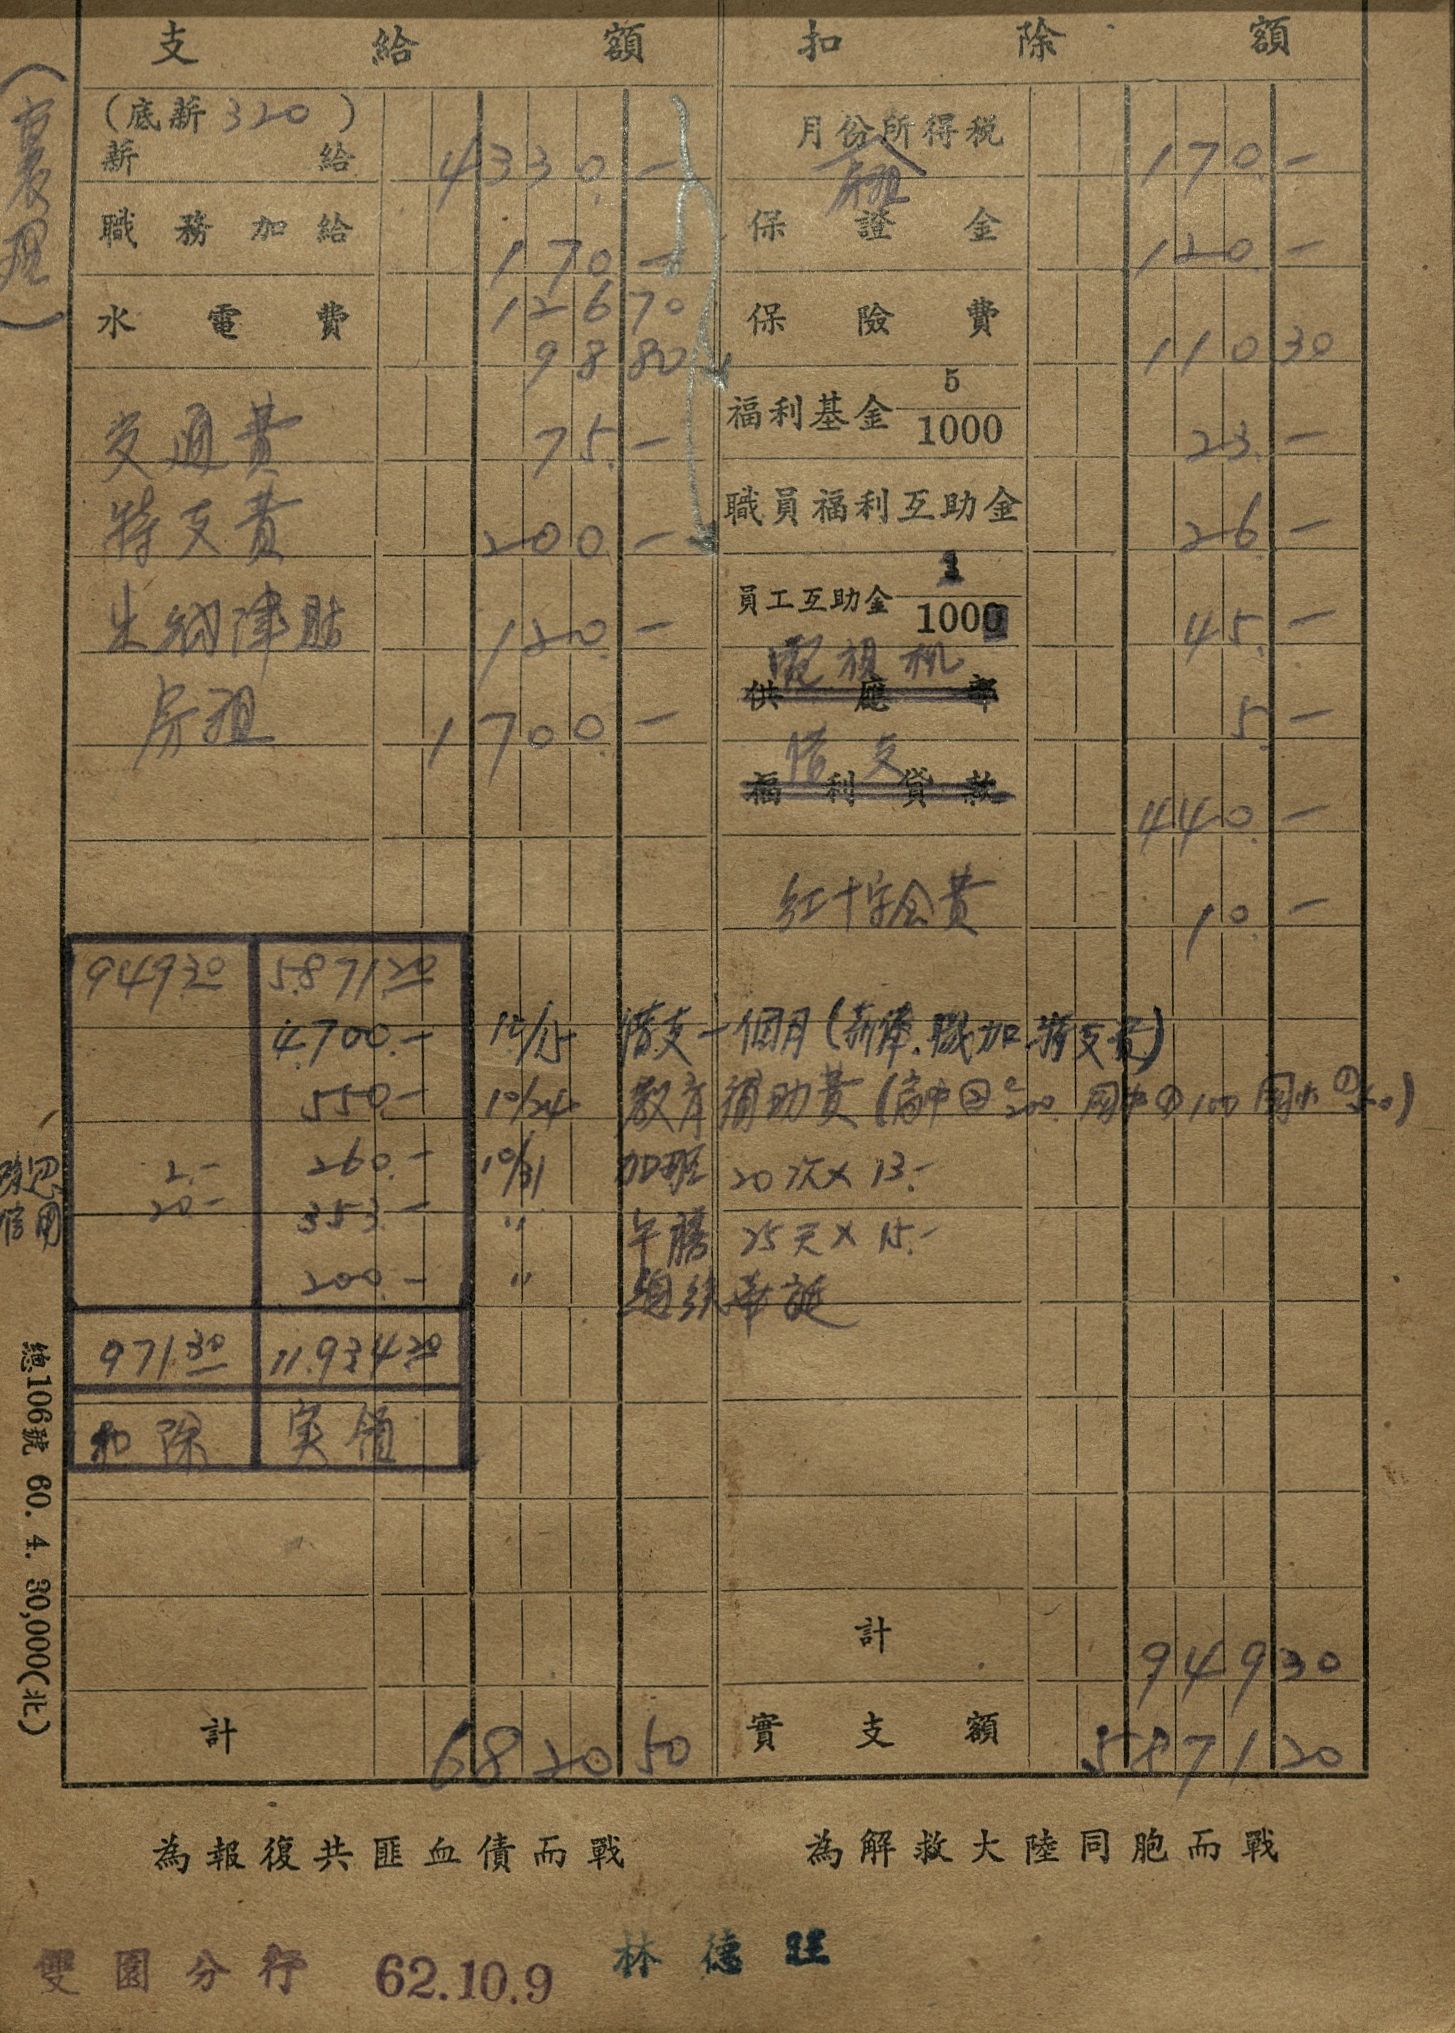 支給額
扣除額
(底薪320)
薪給 4330.—
職務加給 170.—
水電費 126 70
98 80
交通費 75.—
特支費 200.—
出納津貼 120.—
房租 1700.—
計 6820 50
月份所得稅 170.—
房租
保證金 120.—
保險費 110 30
福利基金 5/1000 23.—
職員福利互助金 26.—
員工互助金 1/1000 45.—
電視機
供應部 5.—
借支
福利貸款 440.—
紅十字會費 10.—
計 949 30
實支額 5871 20
949.30 5.871.20
4.700.— 10/15 借支一個月(薪俸.職加.特支費)
550.— 10/24 教育補助費
2.— 260.— 10/31 加班 20次×13.—
20.— 353.— 〃 午膳 25天×15.—
200.— 〃 總統華誕
971.30 11.934.20
扣除 实領
信用
總106號 60. 4. 30,000(北)
為報復共匪血債而戰
為解救大陸同胞而戰
雙園分行 62.10.9 林德